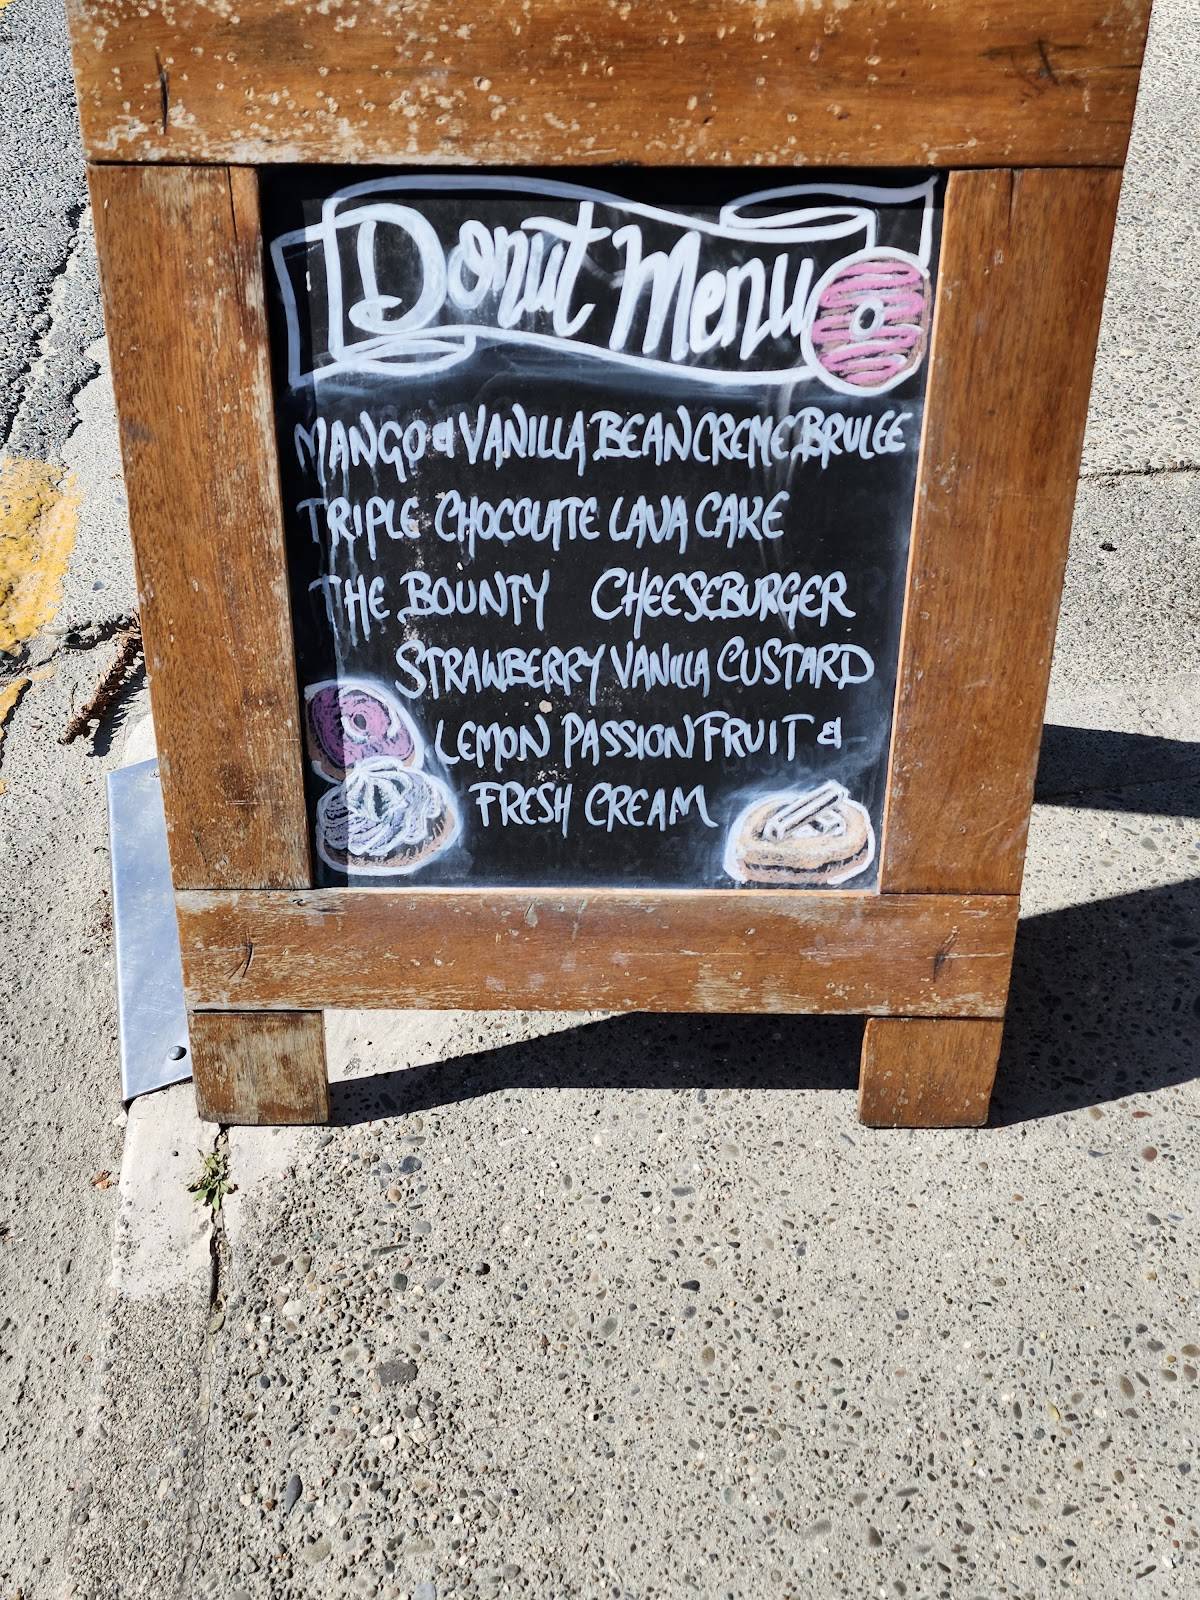 Donut Menu
MANGO & VANILLA BEAN CREME BRULEE
TRIPLE CHOCOLATE LAVA CAKE
THE BOUNTY CHEESEBURGER
STRAWBERRY VANILLA CUSTARD
LEMON PASSIONFRUIT &
FRESH CREAM